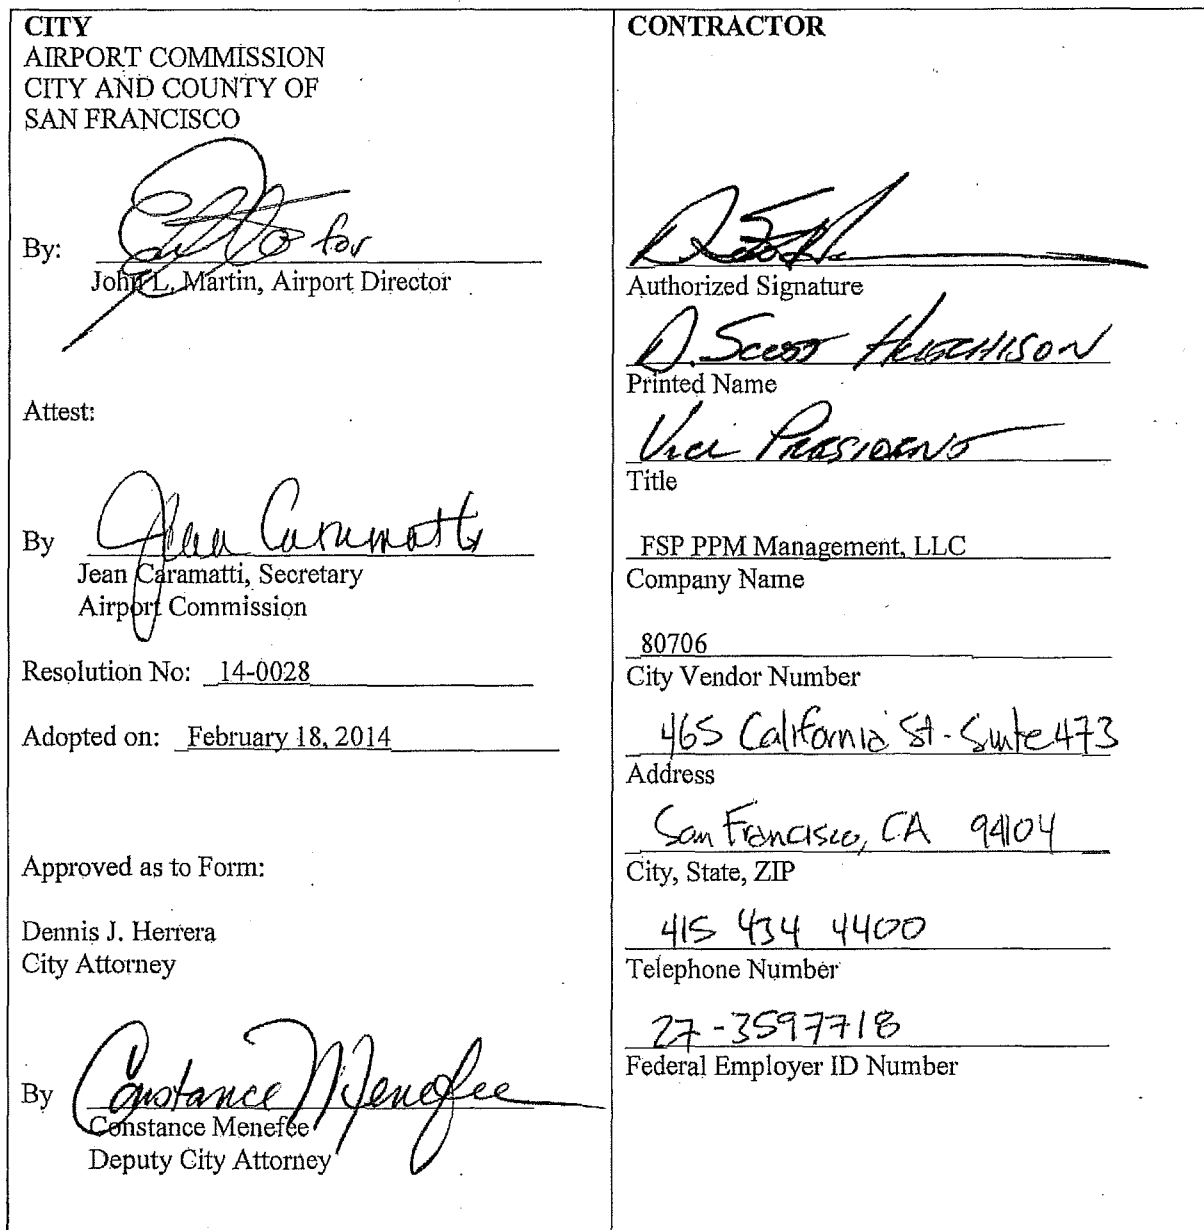 CITY
AIRPORT COMMISSION
CITY AND COUNTY OF
SAN FRANCISCO
By: for
John L. Martin, Airport Director
Attest:
By Jean Caramatti
Jean Caramatti, Secretary
Airport Commission
Resolution No: 14-0028
Adopted on: February 18, 2014
Approved as to Form:
Dennis J. Herrera
City Attorney
By Constance Menefee
Constance Menefee
Deputy City Attorney
CONTRACTOR
Authorized Signature
D. Scott Hutchison
Printed Name
Vice President
Title
FSP PPM Management, LLC
Company Name
80706
City Vendor Number
465 California St - Suite 473
Address
San Francisco, CA 94104
City, State, ZIP
415 434 4400
Telephone Number
27-3597718
Federal Employer ID Number